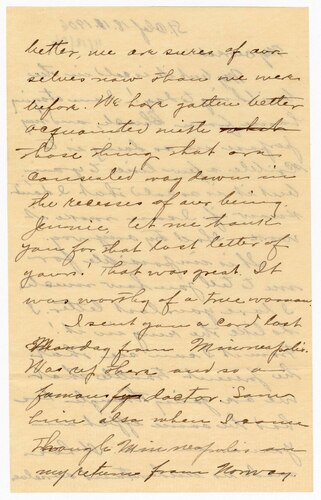 better, we are surer of our
selves now than we were
before. We have gotten better
acquainted with which
those thing that are
concealed way down in
the recesses of our being.
Jennie, let me thank
you for that last letter of
yours! That was great. It
was worthy of a true woman.
I sent you a card last
Monday from Minneapolis.
Was up there and so a
famous doctor. Saw
him also when I came
through Minneapolis on
my return from Norway.